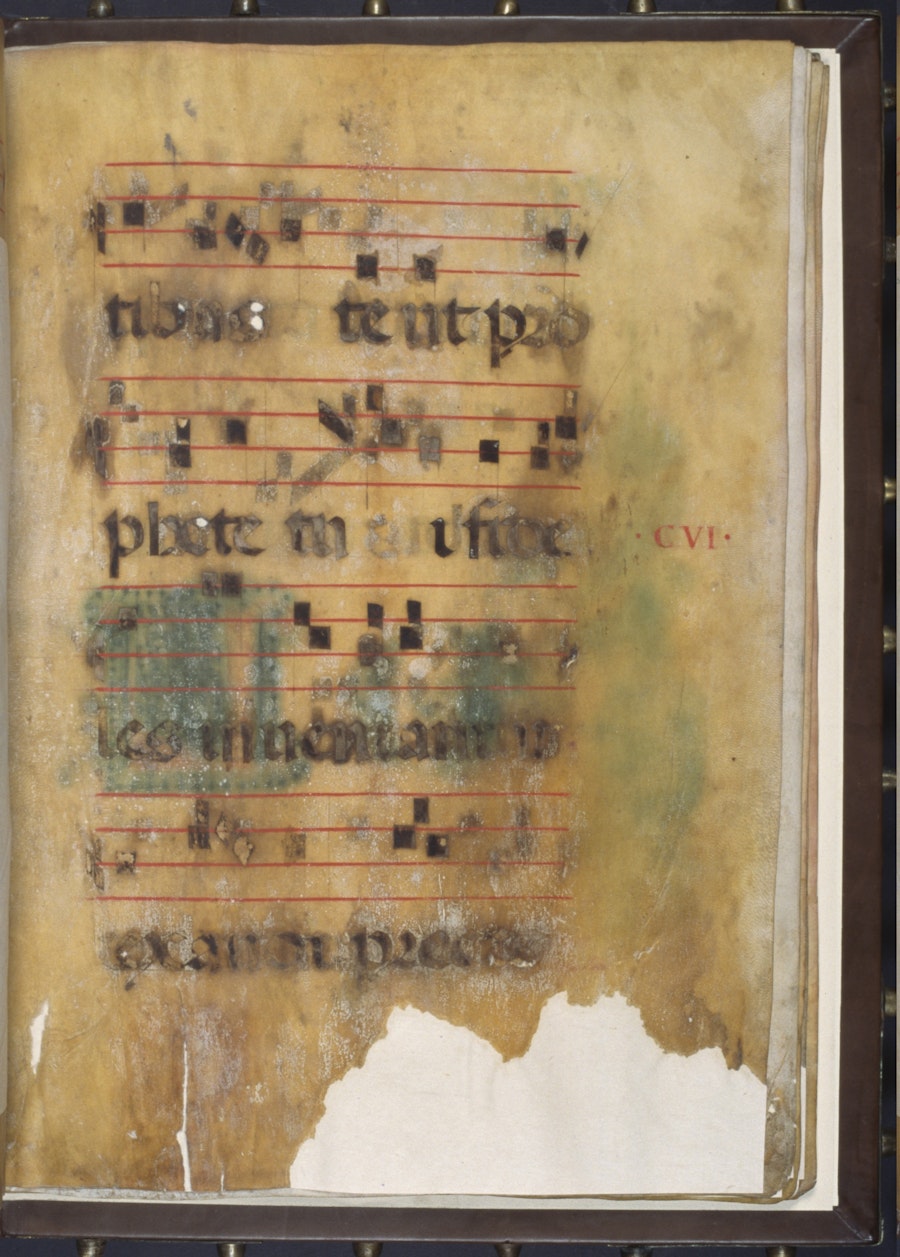 tibus te ut pro
phete tu i fide
· CVI ·
les inueniantur
exaudi preces